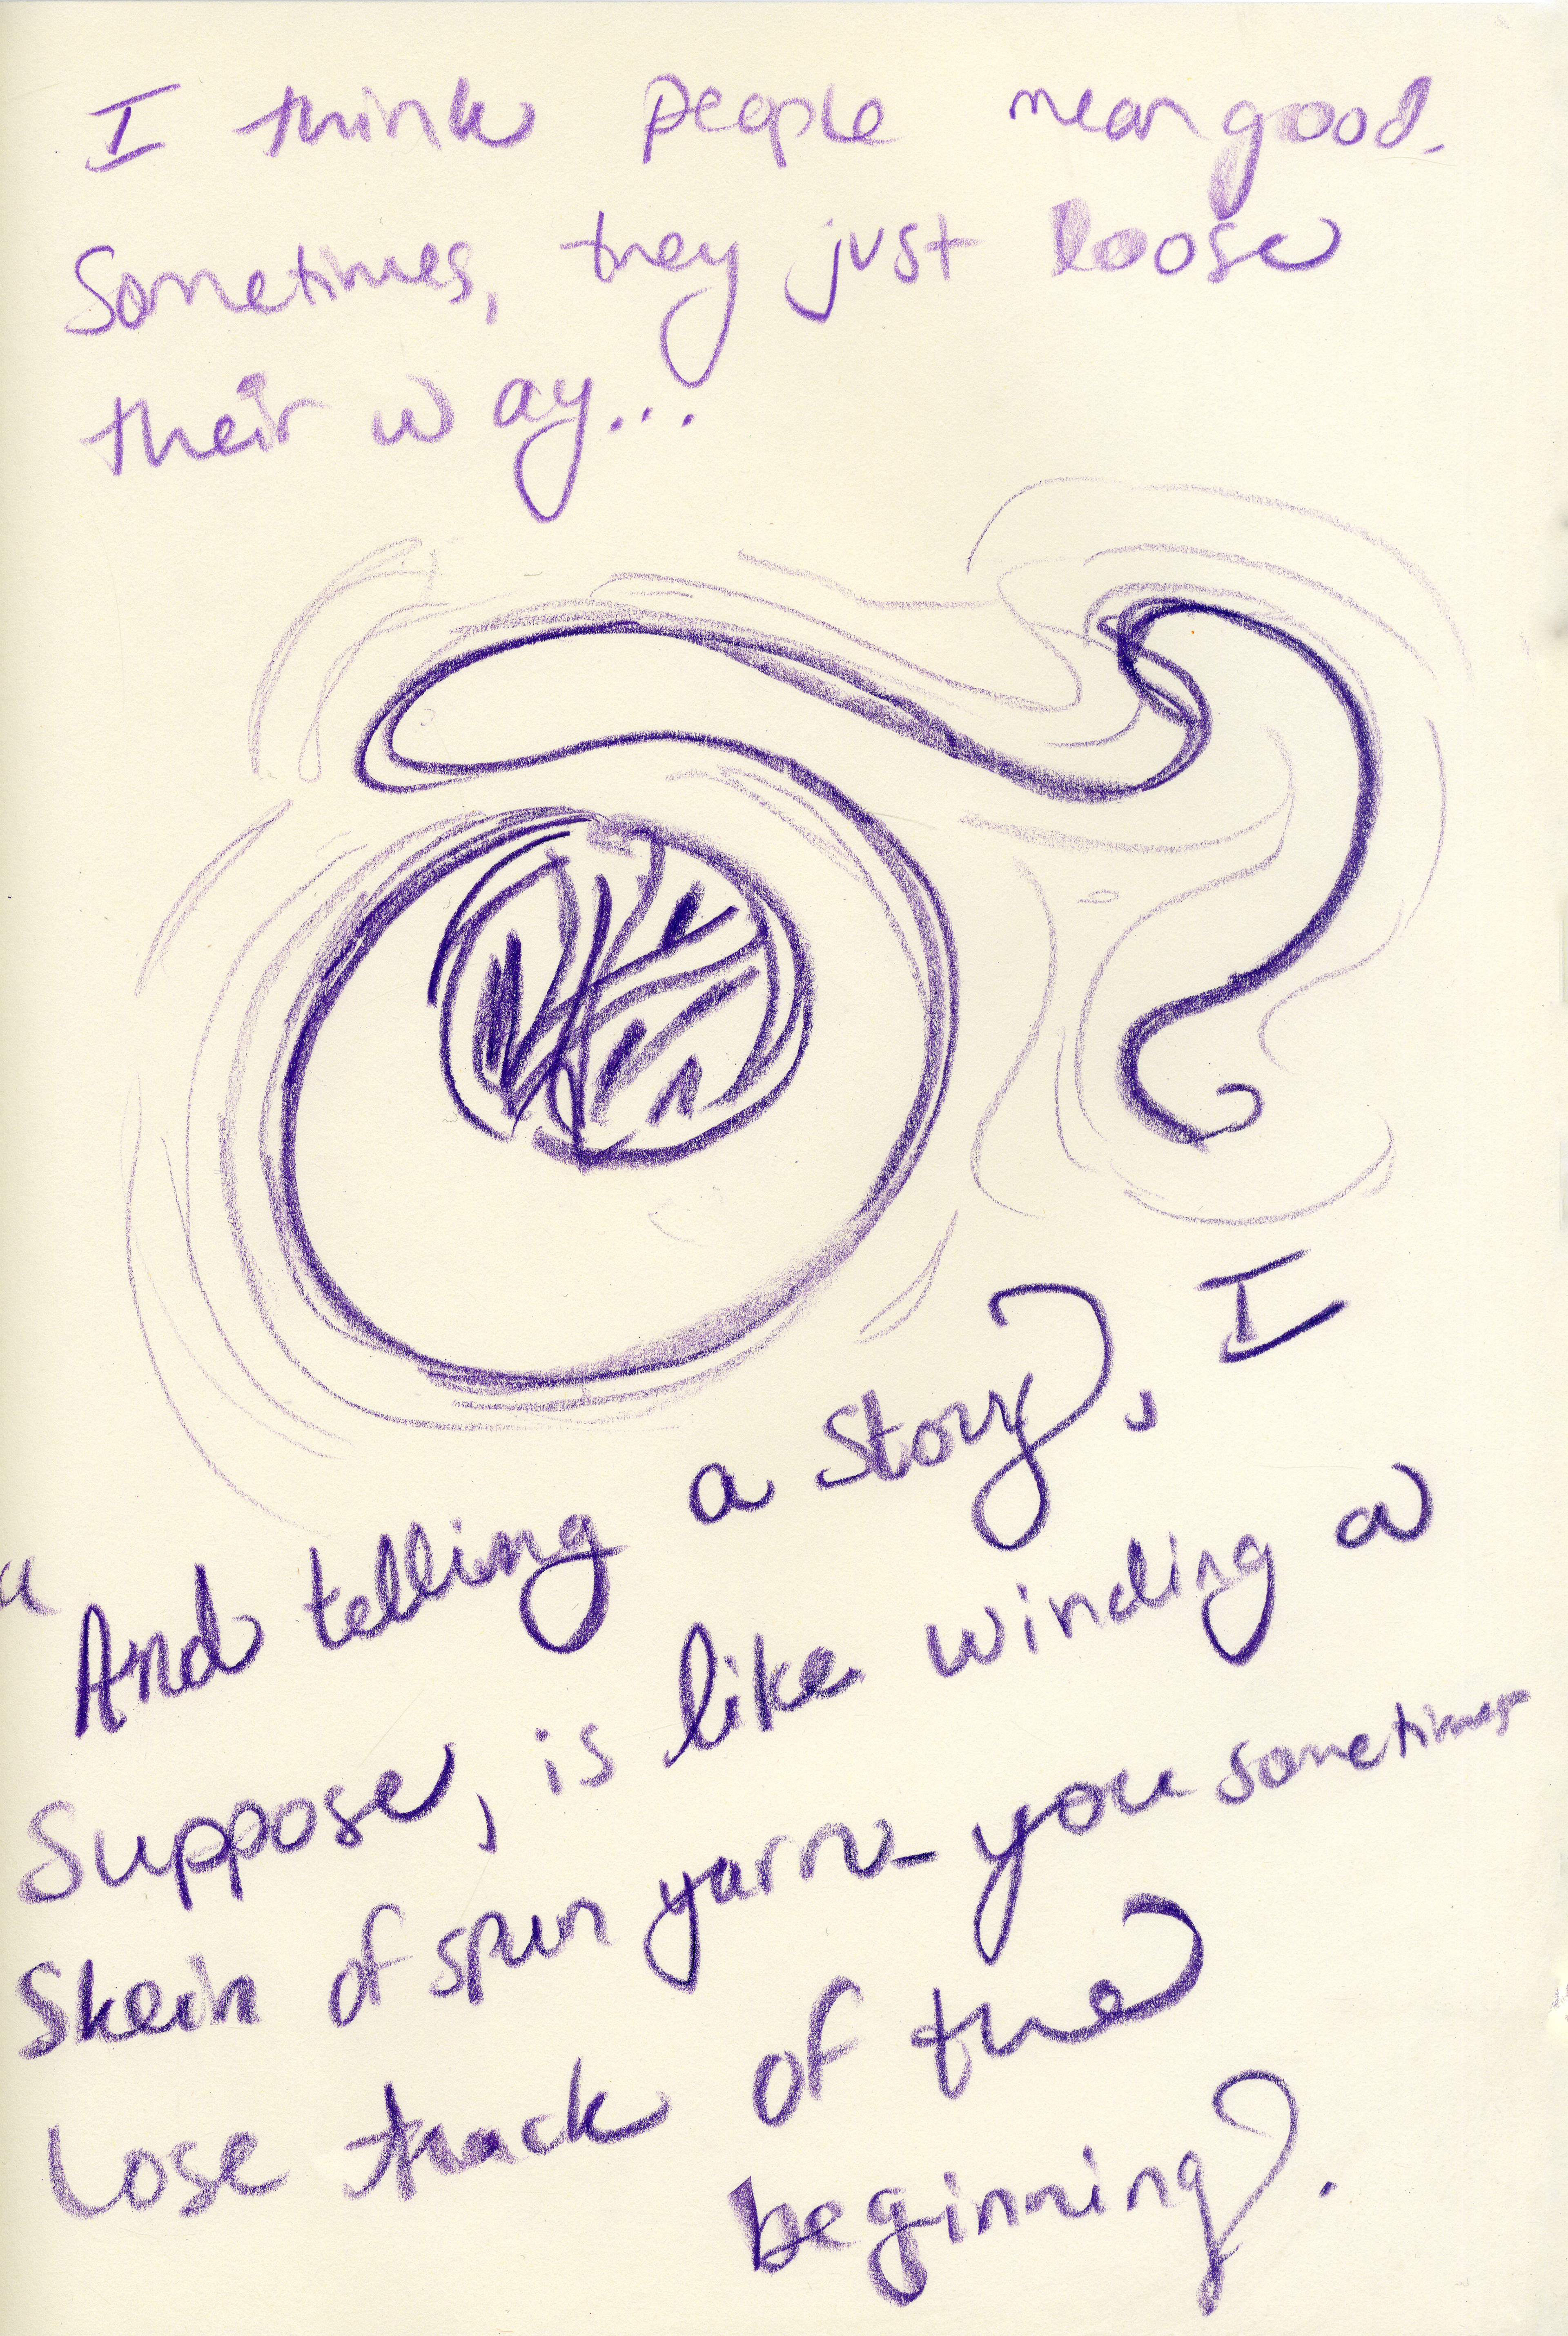 I think people mean good.
Sometimes, they just loose
their way...
" And telling a story, I
suppose, is like winding a
skein of spun yarn - you sometimes
lose track of the
beginning.